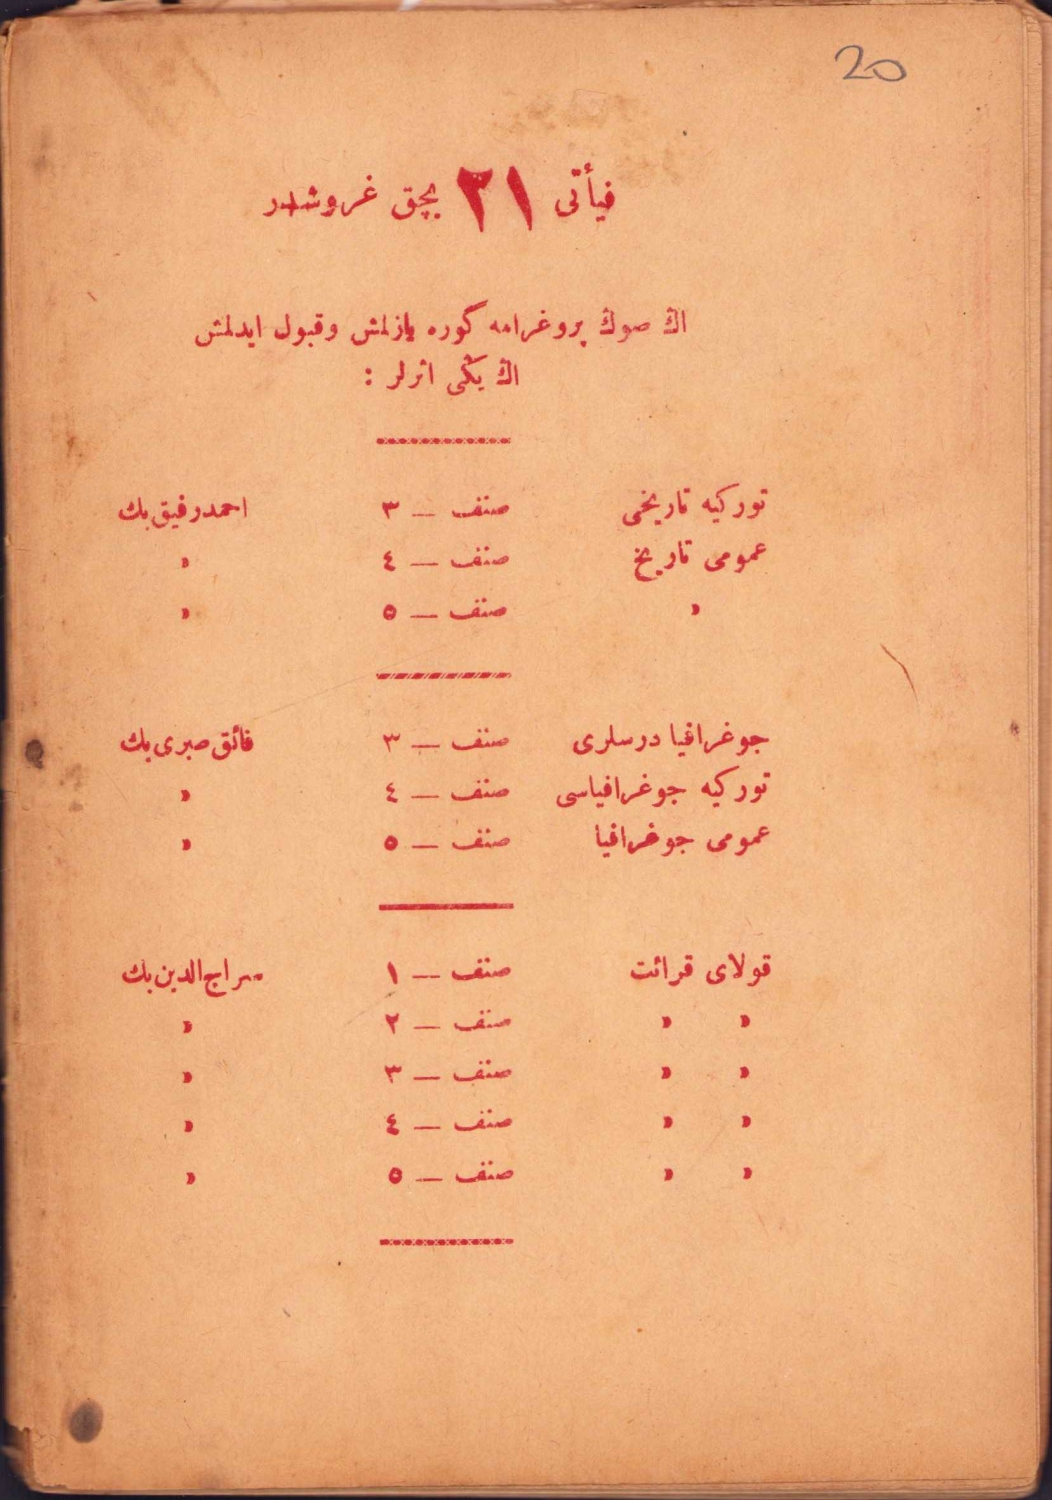 20
فیأتی ۲۱ بچق غروشدر
اڭ صوڭ پروغرامه گوره یازلمش وقبول ایدلمش
اڭ یڭی اثرلر :
تورکیه تاریخی صنف — ٣ احمدرفیق بك
عمومی تاریخ صنف — ٤ »
» صنف — ٥ »
جوغرافیا درسلری صنف — ٣ فائق صبری بك
تورکیه جوغرافیاسی صنف — ٤ »
عمومی جوغرافیا صنف — ٥ »
قولای قرائت صنف — ١ سراج‌الدین بك
» » صنف — ٢ »
» » صنف — ٣ »
» » صنف — ٤ »
» » صنف — ٥ »